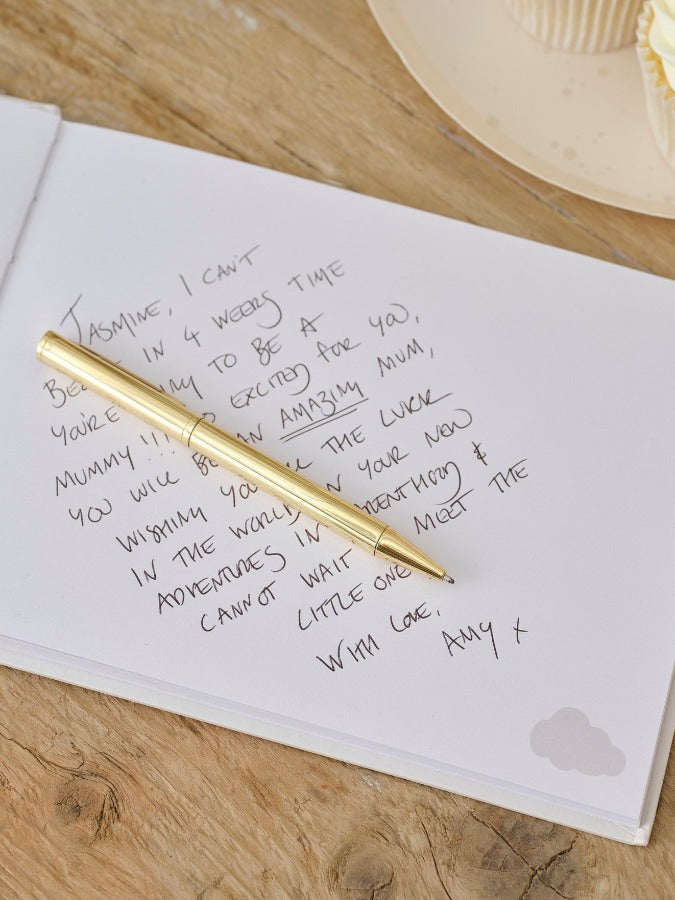 JASMINE, I CAN'T
IN 4 WEEKS TIME
YOU'RE TO BE A
MUMMY !!! SO EXCITED FOR YOU,
YOU WILL BE AN AMAZING MUM,
WISHING YOU ALL THE LUCK
IN THE WORLD IN YOUR NEW
ADVENTURES IN PARENTHOOD &
CANNOT WAIT MEET THE
LITTLE ONE
WITH LOVE,
AMY x